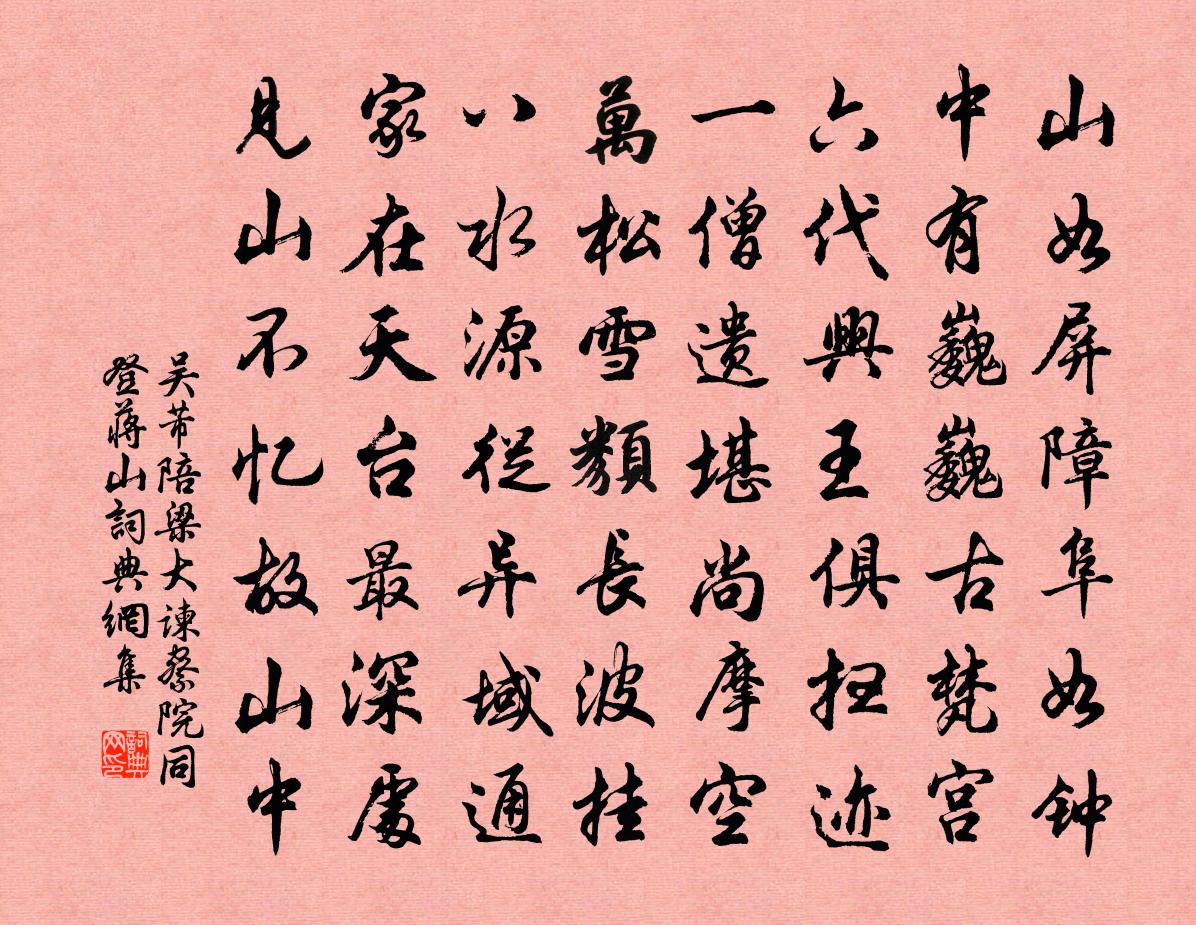 山如屏障阜如钟
中有巍巍古梵宫
六代興王俱扫迹
一僧遗堪尚摩空
萬松雪類長波挂
八水源從异域通
家在天台最深處
見山不忆故山中
吴芾陪梁大谏察院同
登蒋山詞典網集
詞典网印